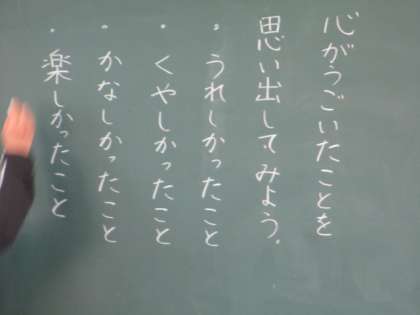 心がうごいたことを
思い出してみよう。
・うれしかったこと
・くやしかったこと
・かなしかったこと
・楽しかったこと